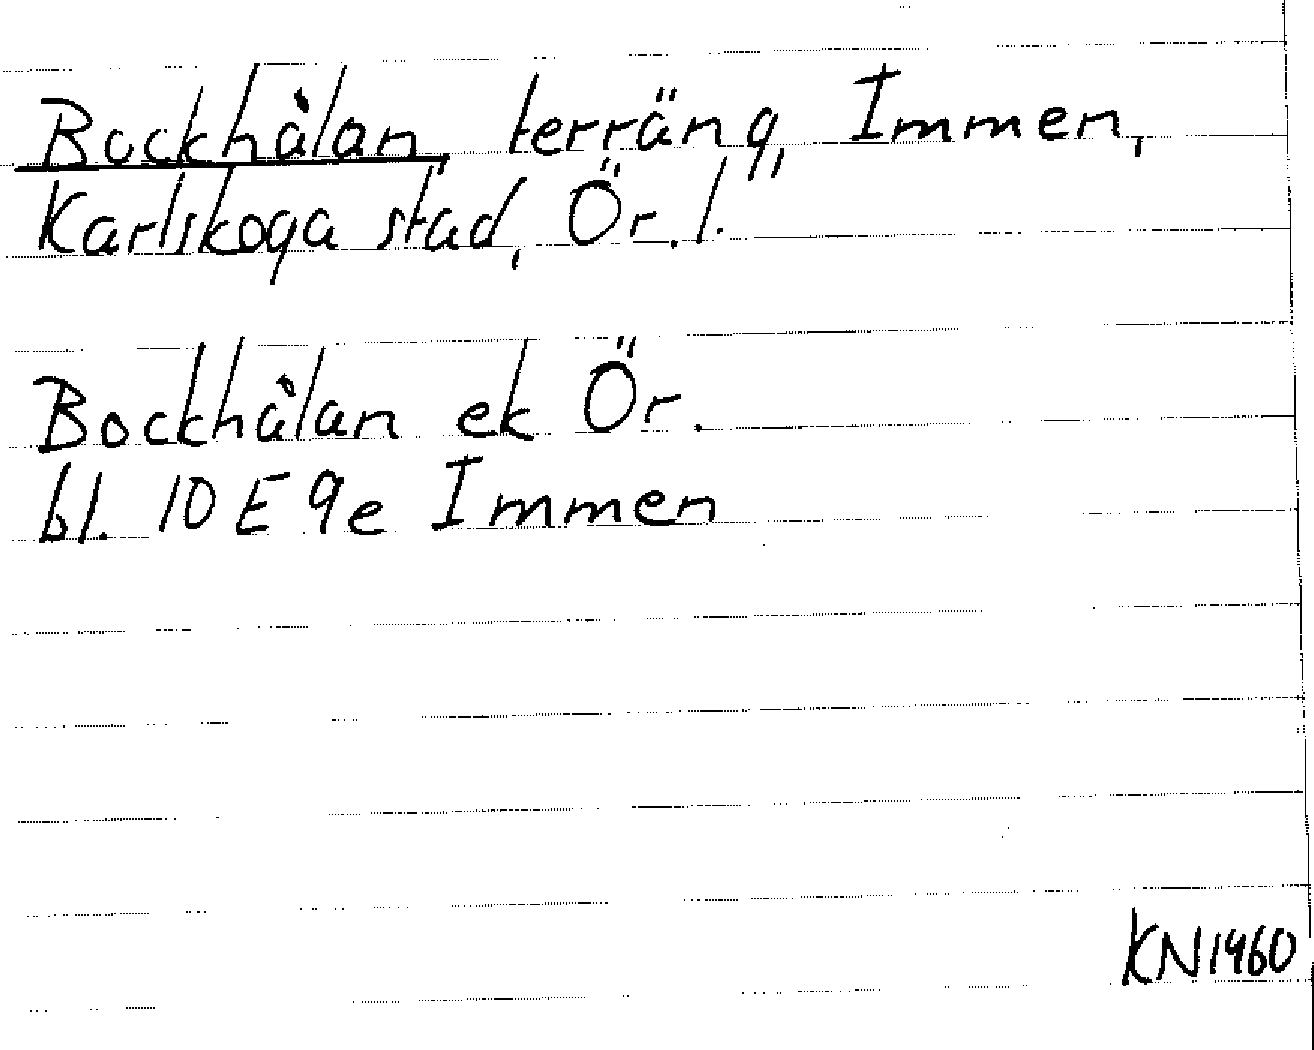 Bockhålan, terräng, Immen,
Karlskoga stad, Ör. l.
Bockhålan ek Ör.
bl. 10 E 9e Immen
KN1960